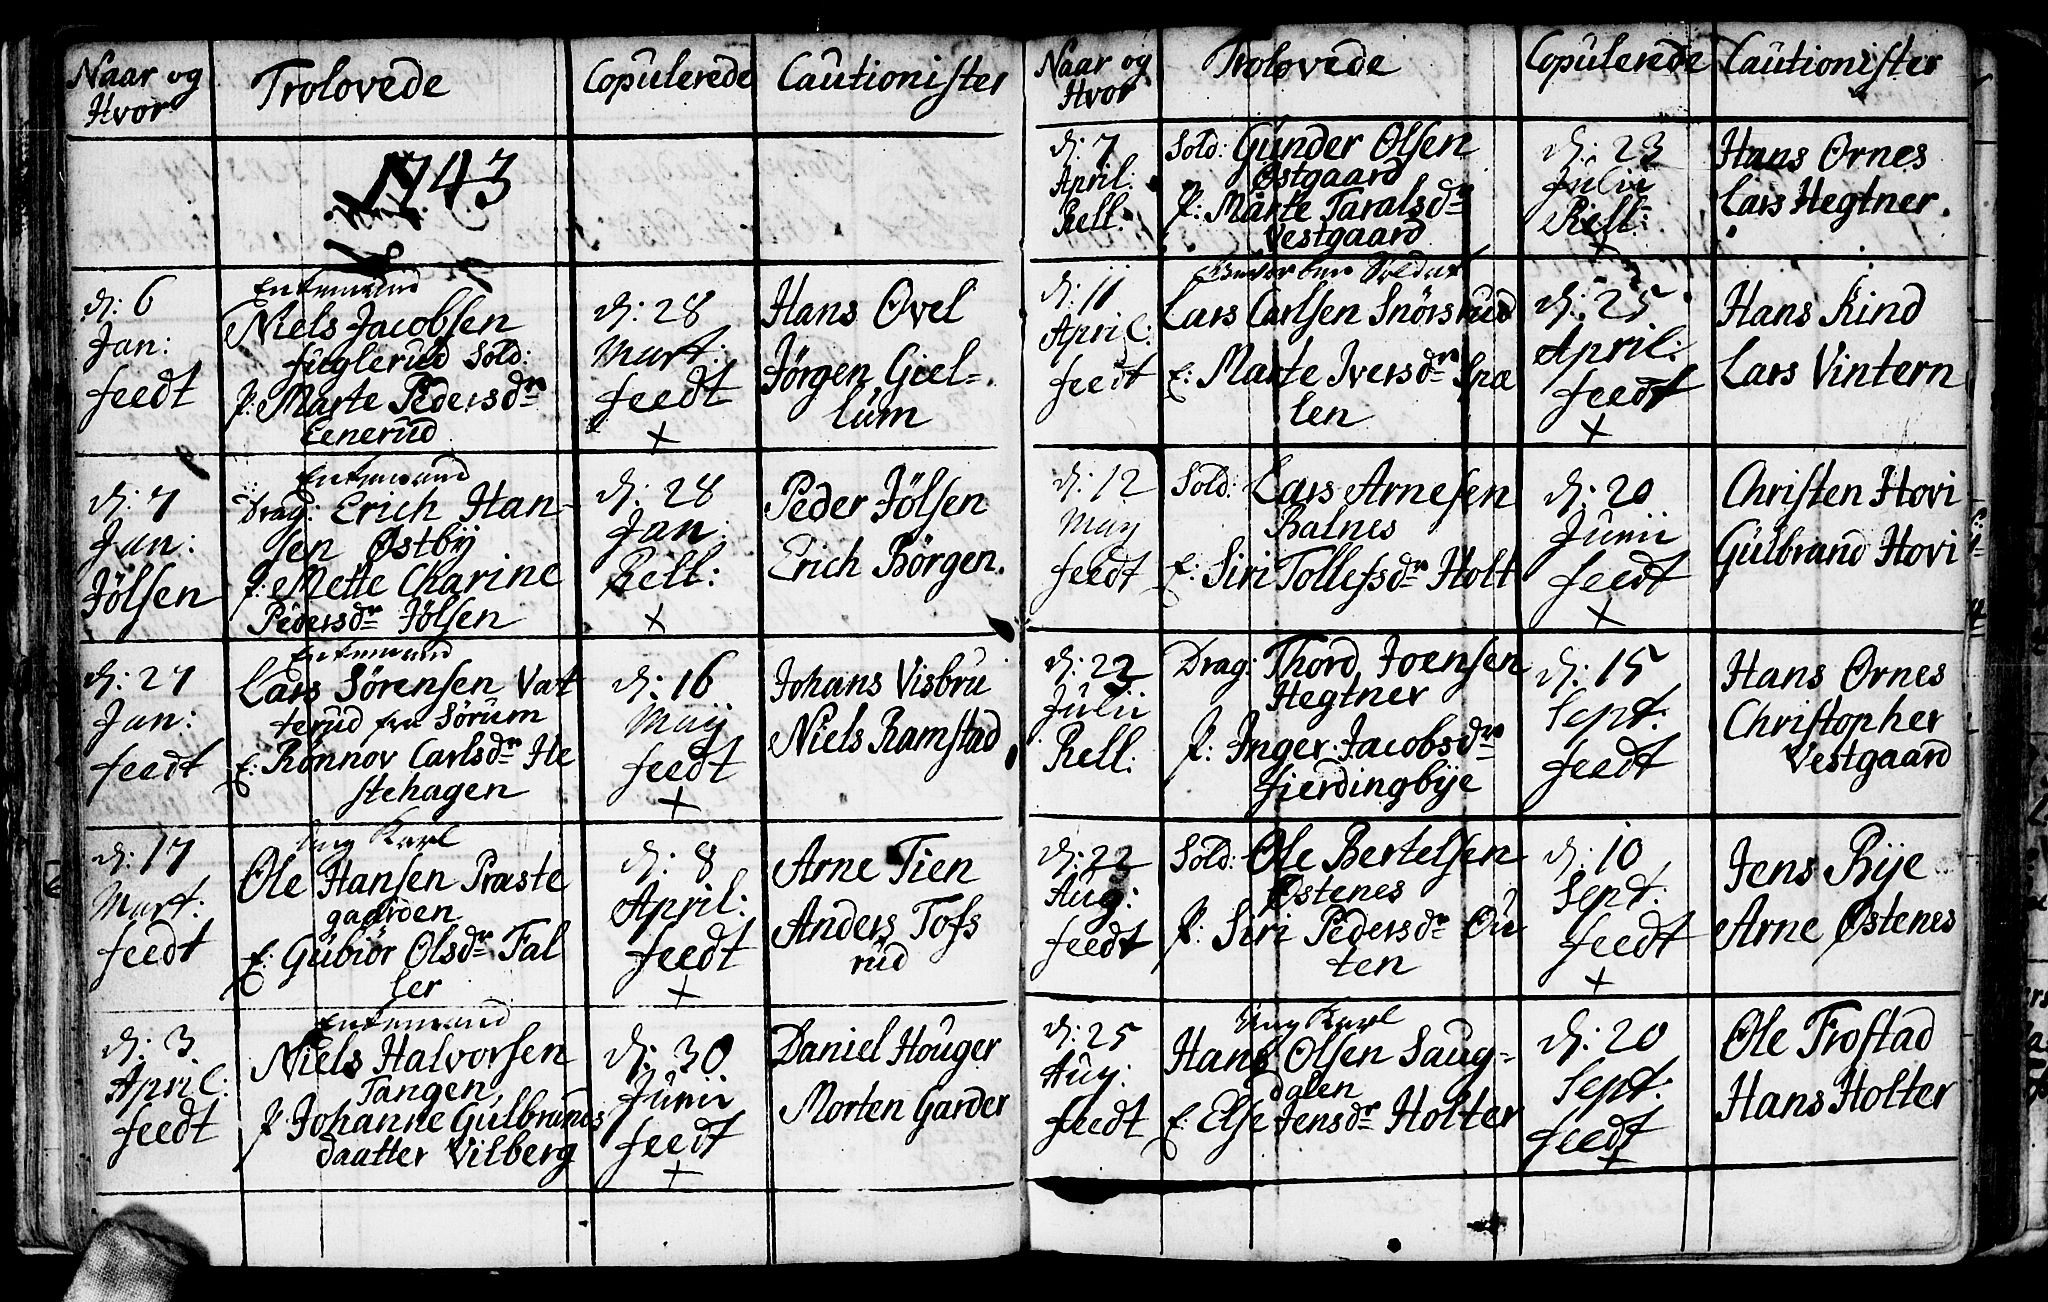 Naar og
Hvor
Trolovede
Copulerede
Cautionister
1743
d: 6
Jan:
feedt
Enkemand
Niels Jacobsen
fuglerud Sold:
P: Marte Pedersdr
Eenerud
d: 28
Mart:
feedt
+
Hans Ovel
Jørgen Giel=
lum
d: 7
Jan:
Jølsen
Enkemand
Drag: Erich Han-
sen Østby
P: Mette Charine
Pedersdr Jølsen
d: 28
Jan:
Rell:
+
Peder Jølsen
Erich Børgen.
d: 27
Jan:
feedt
Enkemand
Lars Sørensen Vat
terud fra Sørum
E: Rønnov Carlsdr He
stehagen
d: 16
Maij
feedt
+
Johans Visbru
Niels Ramstad
d: 17
Mart:
feedt
Ung Karl
Ole Hansen Præste
gaarden
E: Gubiør Olsdr Fal
ler
d: 8
April:
feedt
+
Arne Tien
Anders Tofs
rud
d: 3
April:
feedt
Enkemand
Niels Halvorsen
Tangen
P Johanne Gulbrands
daatter Vilberg
d: 30
Junii
feedt
+
Daniel Houger
Morten Garder
Naar og
Hvor
Trolovede
Copulerede
Cautionister
d: 7
April:
Rell:
Sold: Gunder Olsen
Østgaard
P: Marte Taralsdr
Vestgaard
d: 23
Julii
Rell:
+
Hans Ornes
Lars Hegtner.
d: 11
April:
feedt
Soldat
Lars Carlsen Snørsrud
E: Marte Iversdr Spa
len
d: 25
April:
feedt
+
Hans Rind
Lars Vintern
d: 12
May
feedt
Sold: Lars Arnesen
Balnes
E: Siri Tollefsdr Holt
d: 20
Junii
feedt
+
Christen Hovi
Gulbrand Hovi
d: 22
Julii
Rell:
Drag: Thord Joensen
Hegtner
P: Inger Jacobsdr
fierdingbye
d: 15
Sept:
feedt
Hans Ornes
Christopher
Vestgaard
d: 22
Aug:
feedt
Sold: Ole Bertelsen
Østenes
P: Siri Pedersdr Ou
ten
d: 10
Sept:
feedt
+
Jens Bye
Arne Østenes
d: 25
Aug:
feedt
Ung Karl
Hans Olsen Saug=
dalen
E: Else Jensdr Holter
d: 20
Sept:
feedt
+
Ole Frostad
Hans Holter